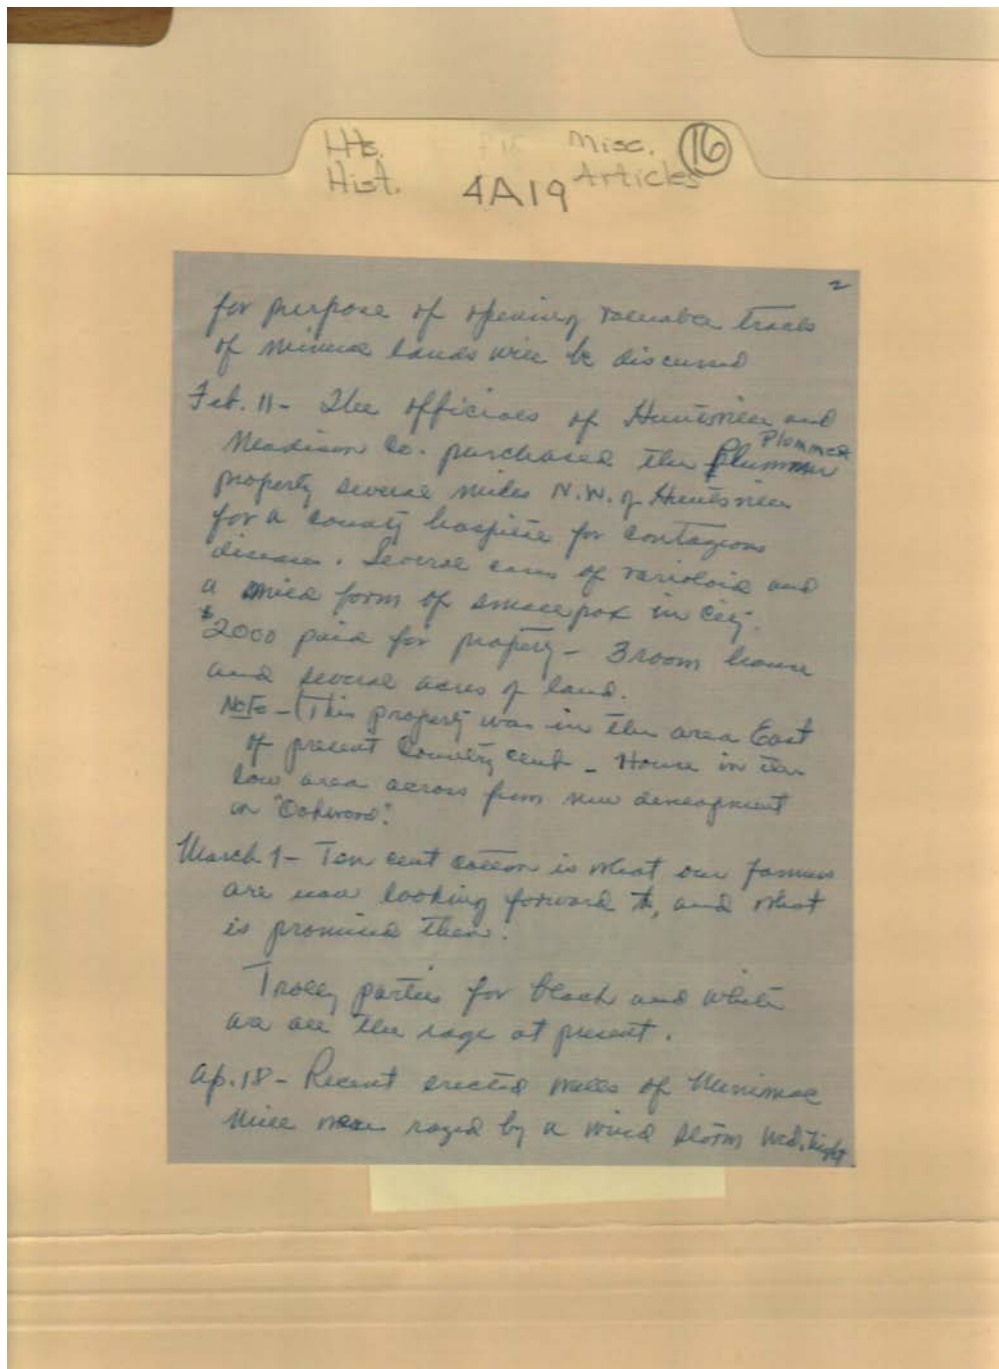 Hts. Misc. 16
Hist. 4A19 Articles
2
for purpose of opening valuable tracts
of mineral lands will be discussed
Feb. 11 - The officials of Huntsville and
Plummer
Madison Co. purchased the Plummer
property several miles N.W. of Huntsville
for a county hospital for contagious
diseases. Several cases of varioloid and
a mild form of small pox in city.
$2000 paid for property - 3 room house
and several acres of land.
Note - (This property was in the area East
of present Country Club - House in the
low area across from new development
on "Oakwood".
March 1 - Ten cent cotton is what our farmers
are now looking forward to, and what
is promised them.
Trolley parties for black and white
are all the rage at present.
Ap. 18 - Recent erected walls of Merrimac
Mill were razed by a wind storm Wed. night.